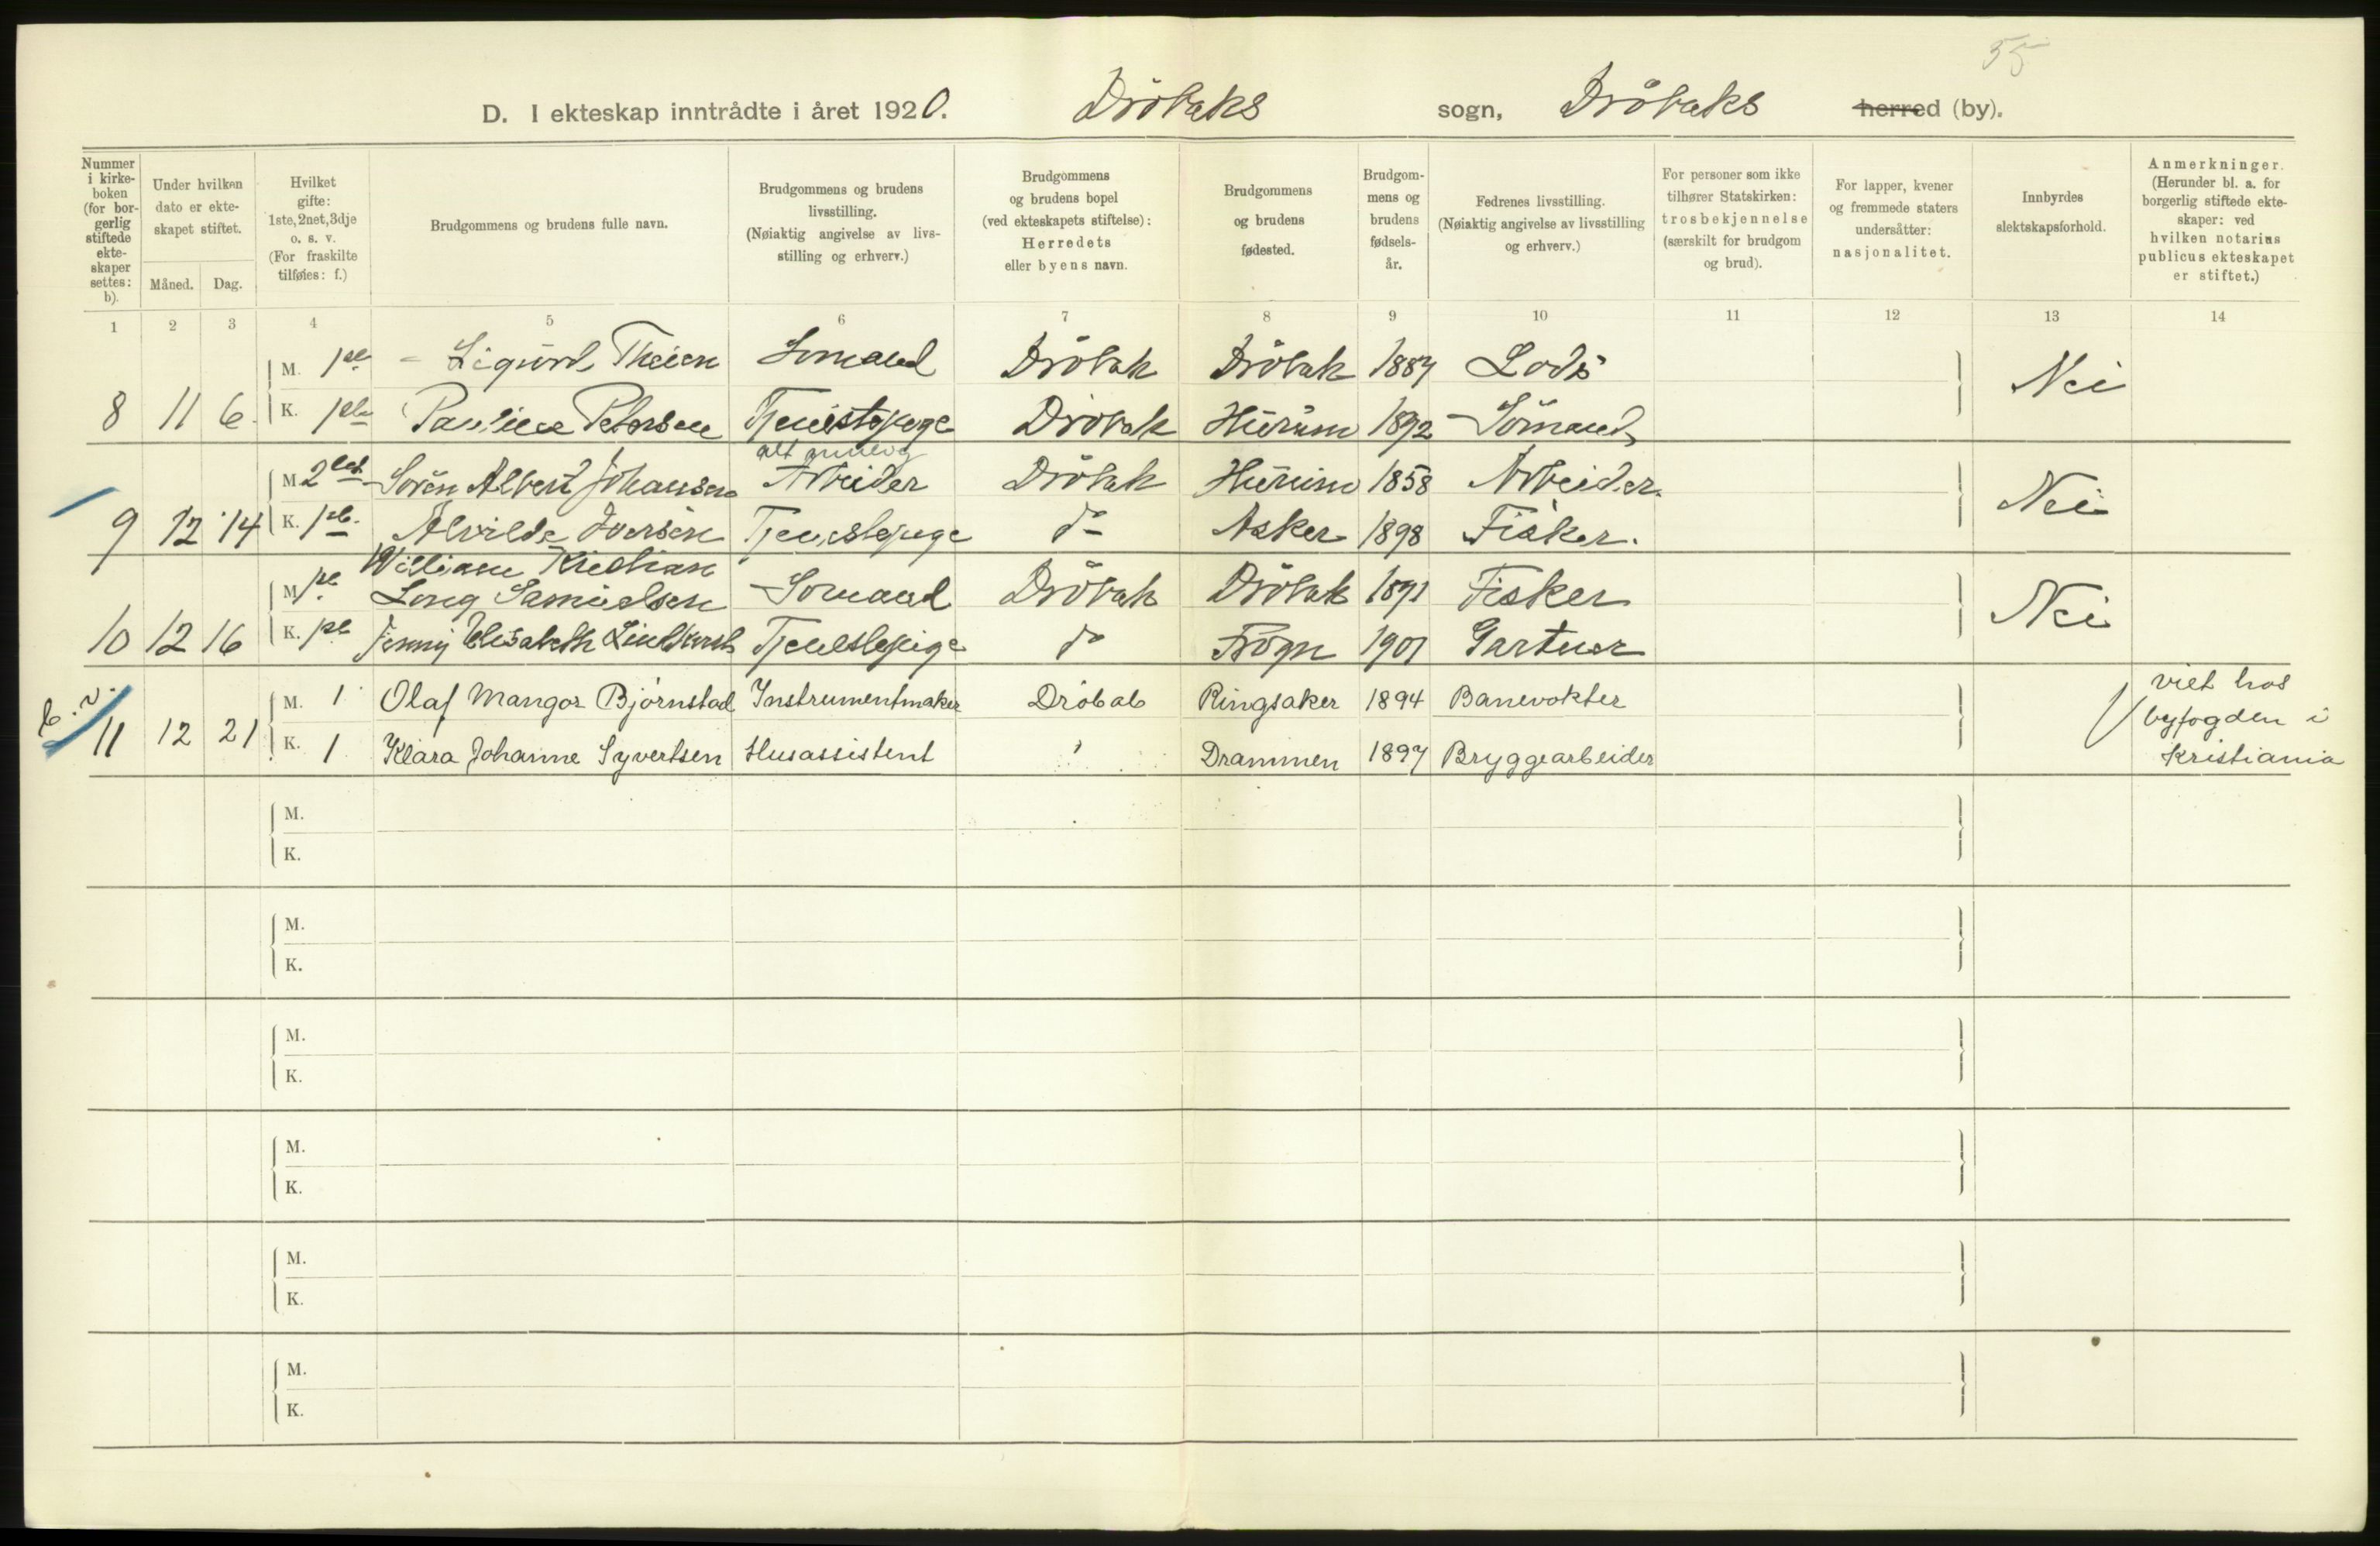 55
D. I ekteskap inntrådte i året 1920. Dröbaks sogn, Dröbaks herred (by).
Nummer i kirke-boken (for bor-gerlig stiftede ekte-skaper settes: b).
Under hvilken dato er ekte-skapet stiftet.
Måned. Dag.
Hvilket gifte: 1ste, 2net, 3dje o. s. v. (For fraskilte tilføies: f.)
Brudgommens og brudens fulle navn.
Brudgommens og brudens livsstilling. (Nøiaktig angivelse av livs-stilling og erhverv.)
Brudgommens og brudens bopel (ved ekteskapets stiftelse): Herredets eller byens navn.
Brudgommens og brudens fødested.
Brudgom-mens og brudens fødsels-år.
Fedrenes livsstilling. (Nøiaktig angivelse av livsstilling og erhverv.)
For personer som ikke tilhører Statskirken: trosbekjennelse (særskilt for brudgom og brud).
For lapper, kvener og fremmede staters undersåtter: nasjonalitet.
Innbyrdes slektskapsforhold.
Anmerkninger. (Herunder bl. a. for borgerlig stiftede ekte-skaper: ved hvilken notarius publicus ekteskapet er stiftet.)
1 2 3 4 5 6 7 8 9 10 11 12 13 14
M. Sigurd Sömand Dröbak Dröbak 1887 Lods Nei
8 11 6 K. Pauline Petersen Tjenestepige Dröbak Hurum 1892 Sömand
M 2det Sören Albert Johansen Arbeider Dröbak Hurum 1858 Arbeider. Nei
9 12 14 K. Alvilde Iversen Tjenestepige do Asker 1898 Fisker.
William Kristian
M Long Samuelsen Sömand Dröbak Dröbak 1891 Fisker Nei
10 12 16 K. Jenny Elisabeth Tjenestepige do Frogn 1901 Gartner
b. v.
M. 1 Olaf Mangor Björnstad Instrumentmaker Dröbak Ringsaker 1894 Banevokter viet hos
11 12 21 byfogden i
K. 1 Klara Johanne Syvertsen Husassistent Drammen 1897 Bryggearbeider Kristiania
M.
K.
M.
K.
M.
K.
M.
K.
M.
K.
M.
K.